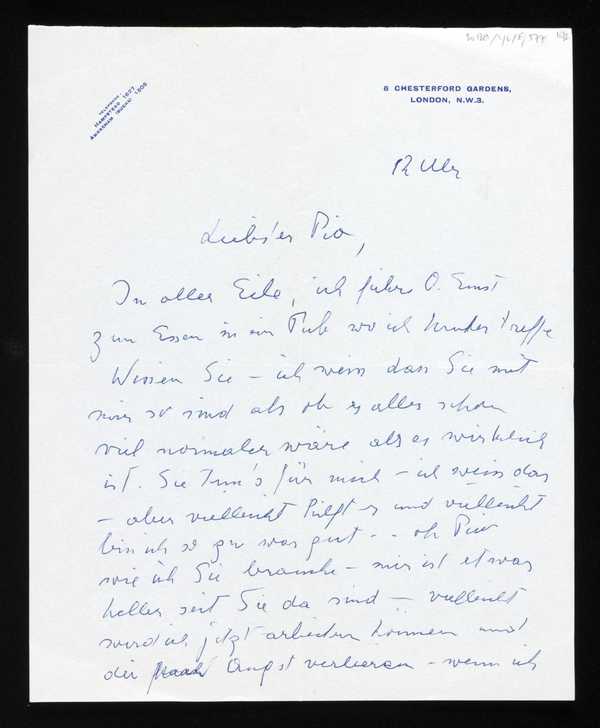 TELEPHONE:
HAMPSTEAD 1827
AMERSHAM (BUCKS) 1306
6 CHESTERFORD GARDENS,
LONDON, N.W.3.
12 Uhr
Liebster Pio,
In aller Eile, ich führe O. Ernst
zum Essen in ein Pub wo ich treffe
Wissen Sie – ich weiss dass Sie mit
mir so sind als ob es alles schon
viel normaler wäre als es wirklich
ist. Sie tun's für mich – ich weiss das
– aber vielleicht hilft es und vielleicht
bin ich so gar was gut - - oh Pio
wie ich Sie brauche – mir ist etwas
heller seit Sie da sind – vielleicht
werd ich jetzt arbeiten können und
die Angst verlieren – wenn ich